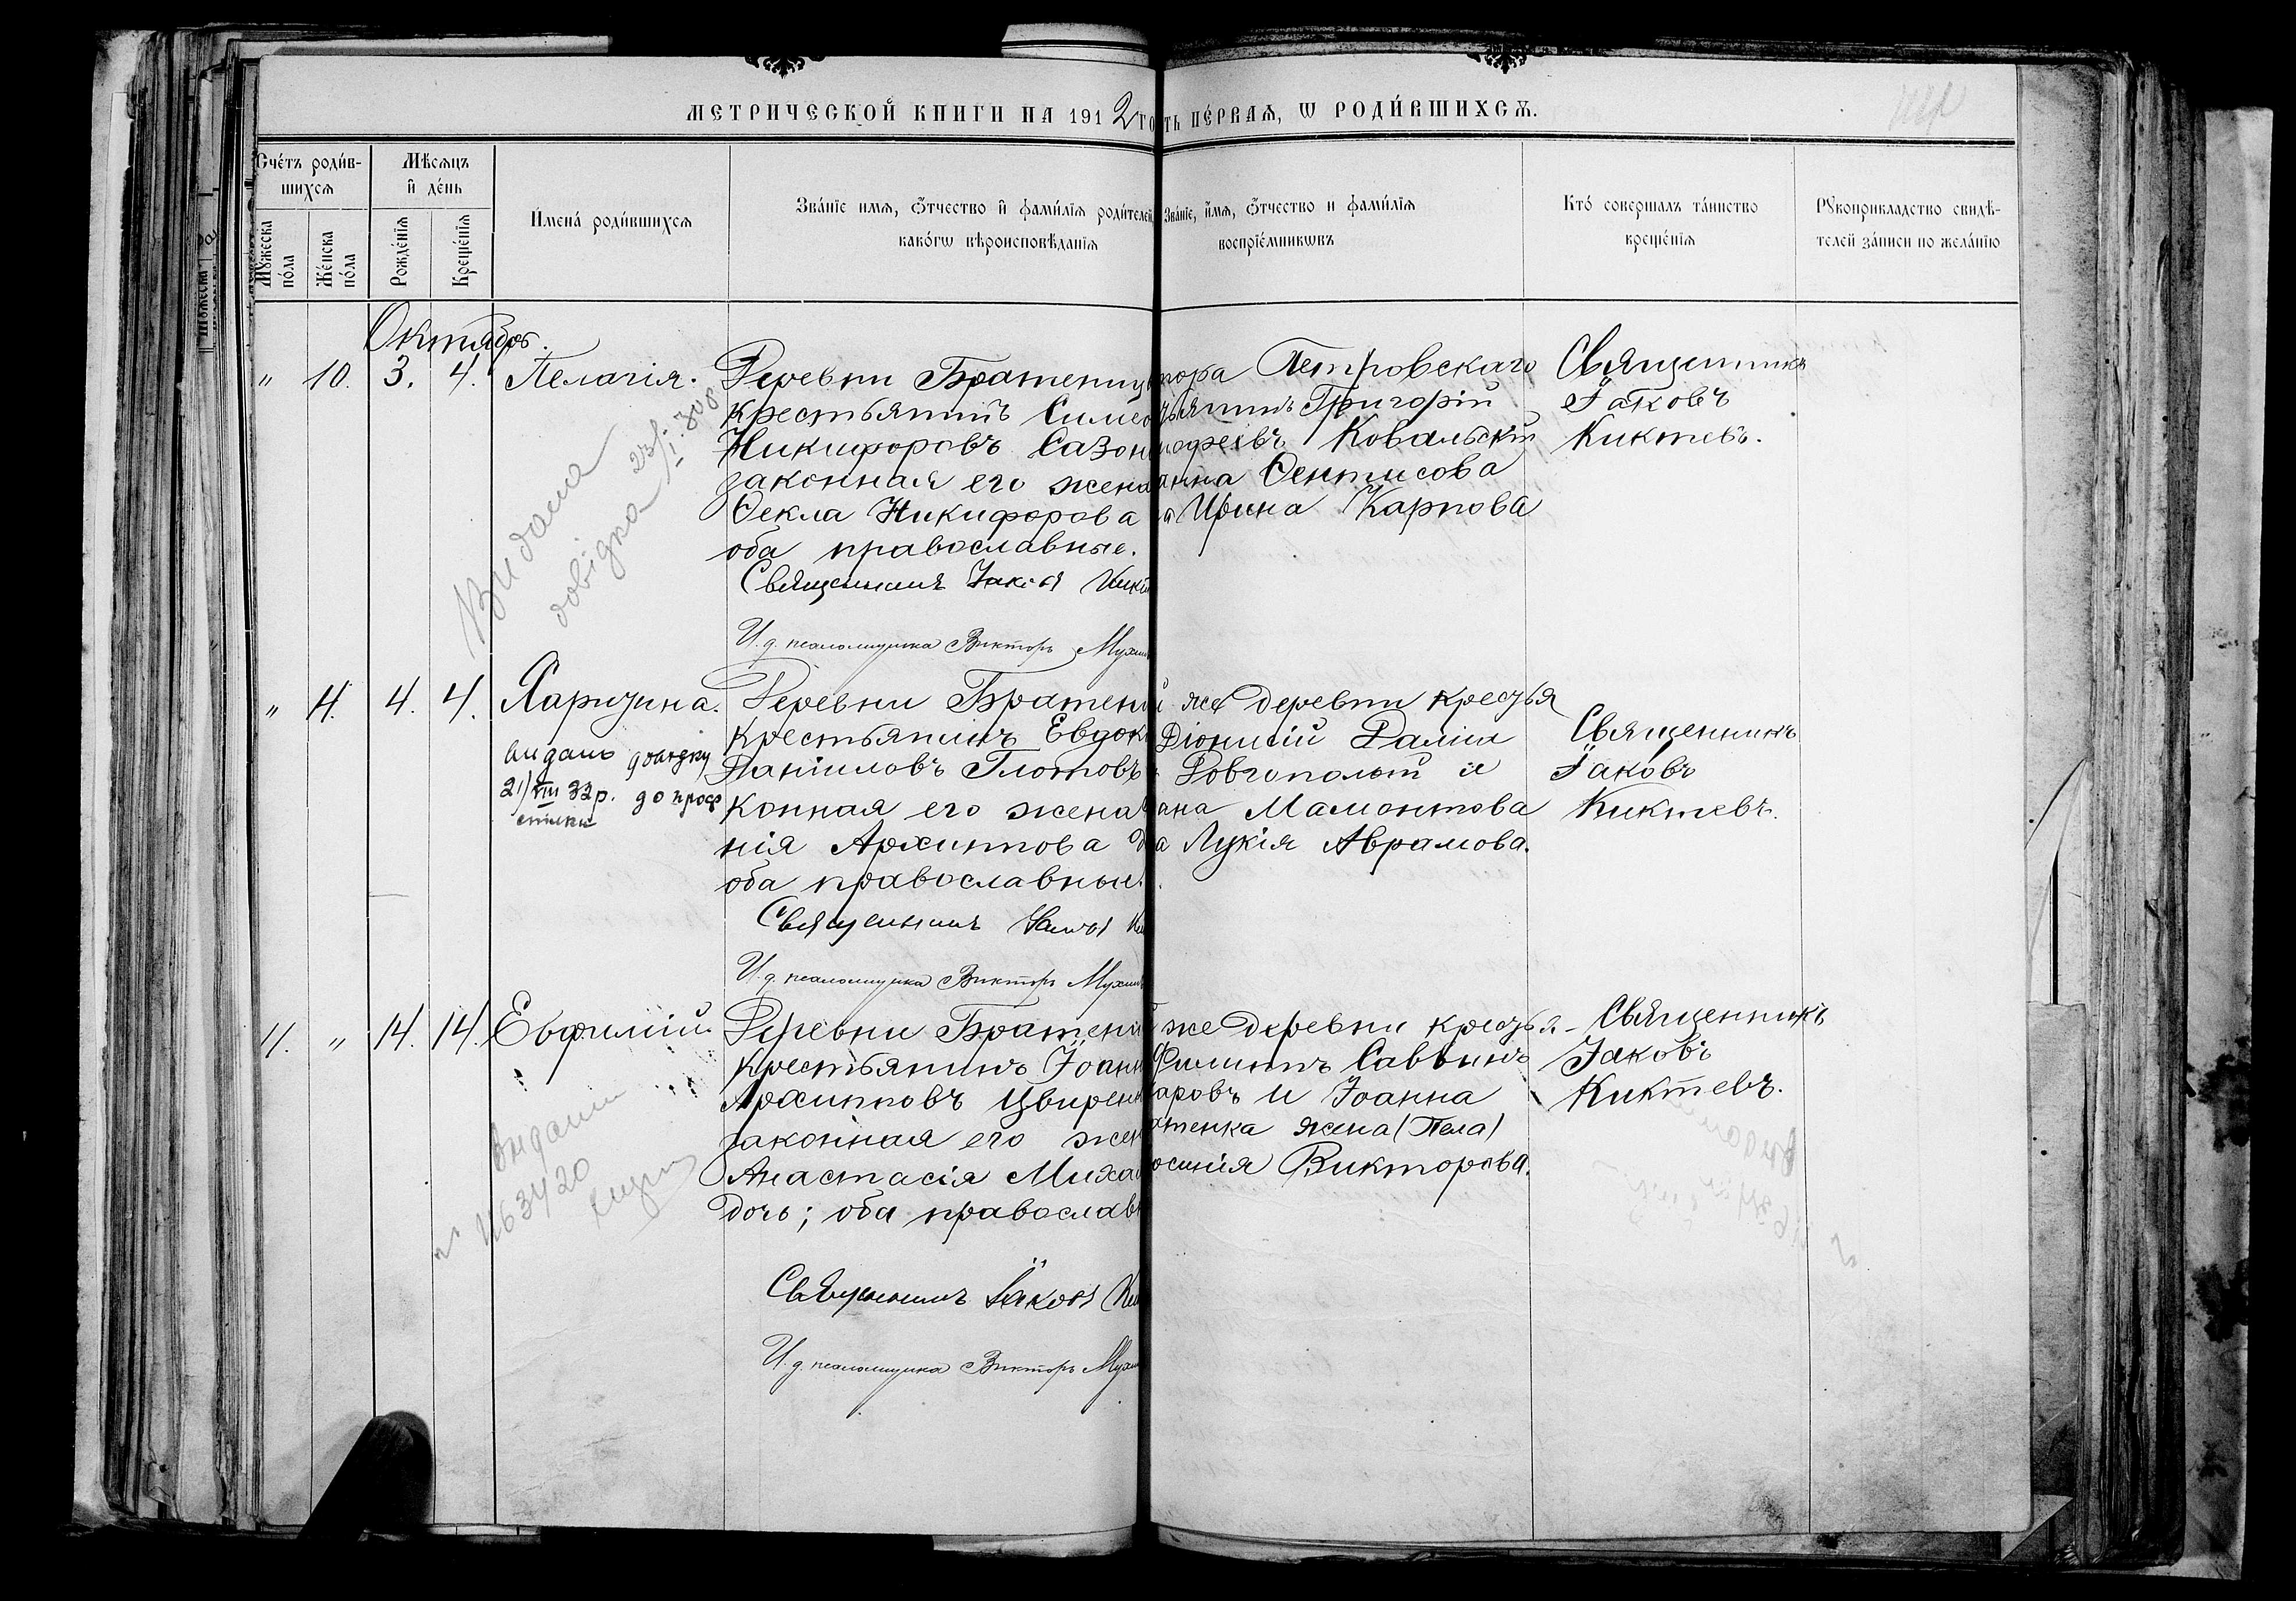 МЕТРИЧЕСКОЙ КНИГИ НА 1912 ГО
ТЬ ПЕ́РВАѦ, Ѡ РОДИ́ВШИХСѦ.
Сче́тъ роди́в-
шихсѧ
Мꙋжеска
по́ла
Же́нска
по́ла
Мѣсѧцъ
и де́нь
Рожде́нїѧ
Креще́нїѧ
Имена́ роди́вшихсѧ
Зва́нїе имѧ, ѻтчество и фами́лїѧ роди́телей
како́гѡ вѣроисповѣ́данїѧ
Зва́нїе, и́мѧ, ѻтчество и фами́лїѧ
воспрїе́мникѡвъ
Кто́ соверша́лъ та́инство
креще́нїѧ
Рꙋкоприкладство свидѣ-
телей за́писи по жела́нїю
Октябрь.
" 10. 3. 4. Пелагія.
Деревни Братениц
крестьянинъ Симео
Никифоровъ Сазон
законная его жена
Ѳекла Никифорова
оба православные.
Священникъ Іаковъ Кикт
И. д. псаломщика Викторъ Мухин
тора Петровскаго
тьянинъ Григорій
Ковальскій
анна
а Ирина Карпова
Священникъ
Іаковъ
Киктевъ.
Видана
довідка
" 11. 4. 4. Харитина.
видано довідку
21/VIII 32 р. до проф
спілки
Деревни Братени
крестьянинъ Евдок
Даніиловъ Глотовъ
конная его жена
нія Архиппова д
оба православные.
Священникъ Іаковъ Ки
И. д. псаломщика Викторъ Мухин
же деревни крестья
Діонисій Даніил
Довгополый и
ана Мамонтова
а Лукія Аврамова.
Священникъ
Іаковъ
Киктевъ.
11. " 14. 14. Евфимій.
Деревни Братени
крестьянинъ Іоанн
Архипповъ Цвирен
законная его жен
Анастасія Миха
дочь; оба православн
Священникъ Іаковъ Ки
И. д. псаломщика Викторъ Мухи
же деревни крестья-
Филиппъ Саввинъ
аровъ и Іоанна
тенка жена (Пела)
осинія Викторова.
Священникъ
Іаковъ
Киктевъ.
видана
1163420